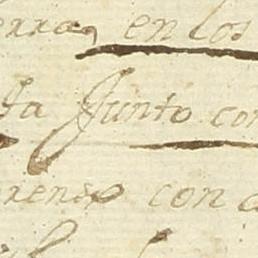 erra, en los
Ja Junto con
renso con